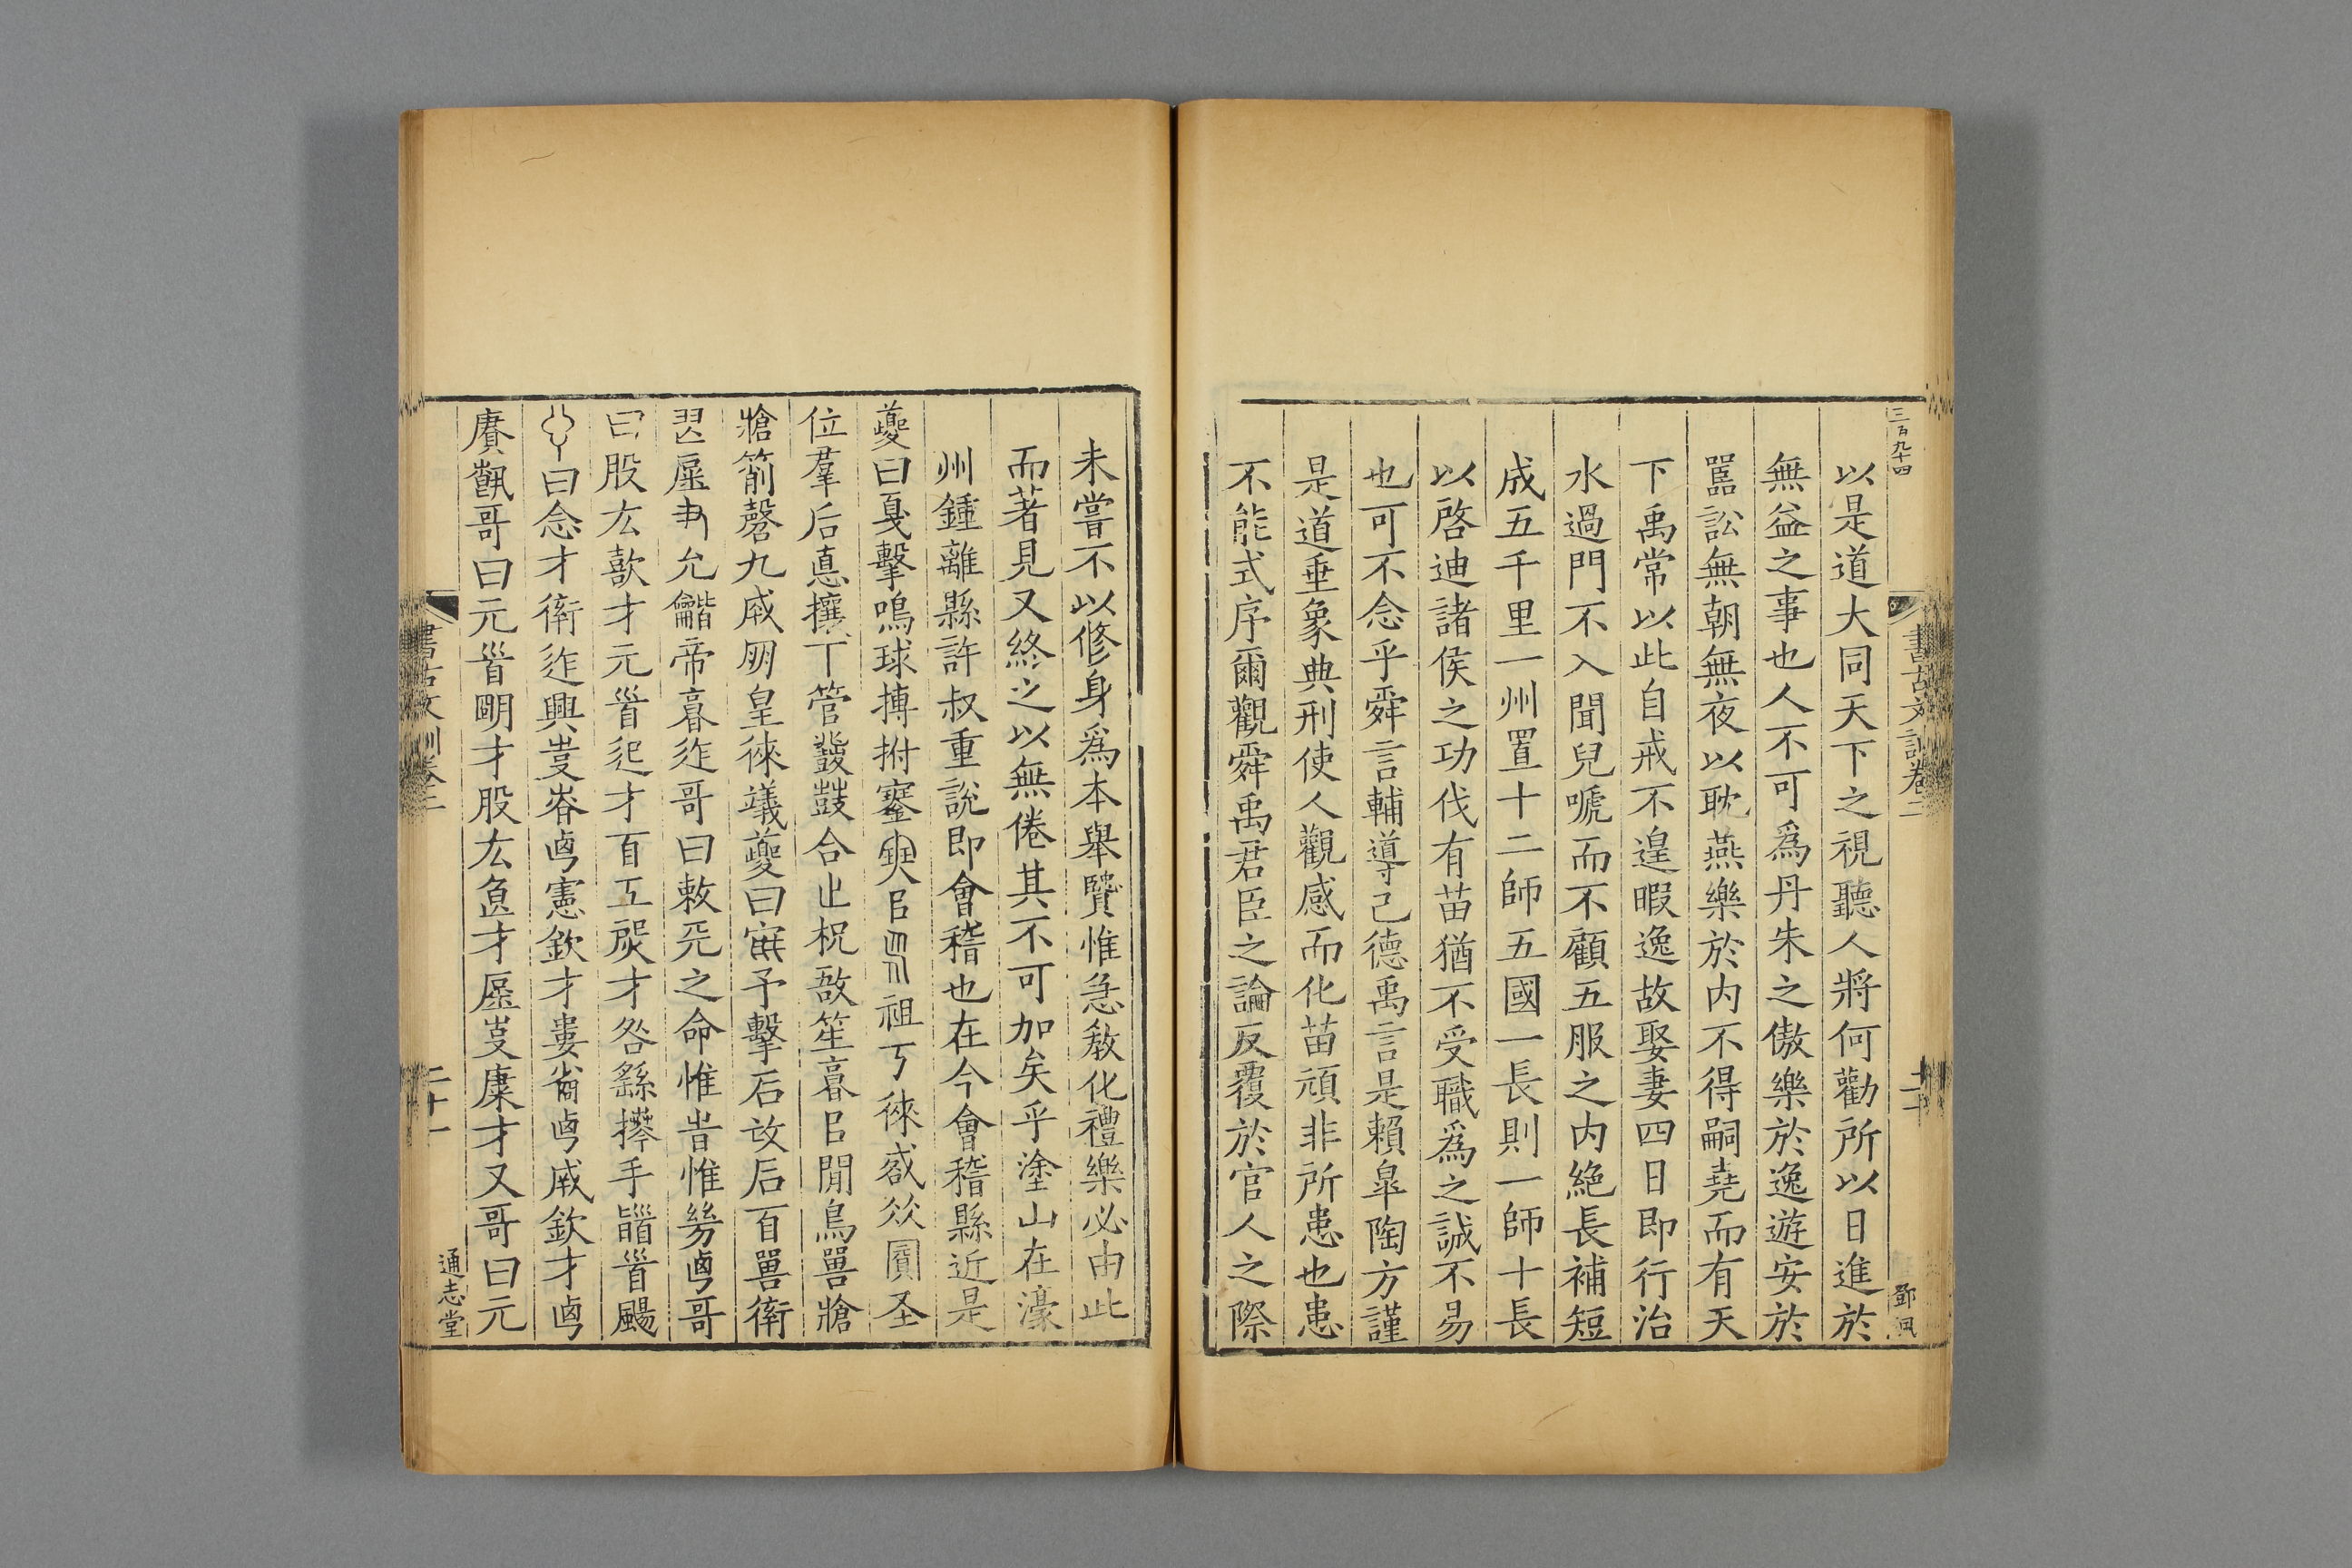 三百九十四
書古文訓卷二
二十
鄧珮
以是道大同天下之視聽人將何勸所以日進於
無益之事也人不可爲丹朱之傲樂於逸遊安於
嚚訟無朝無夜以耽燕樂於内不得嗣堯而有天
下禹常以此自戒不遑暇逸故娶妻四日即行治
水過門不入聞兒嗁而不顧五服之内絶長補短
成五千里一州置十二師五國一長則一師十長
以啓迪諸侯之功伐有苗猶不受職爲之誠不易
也可不念乎舜言輔導己德禹言是賴臯陶方謹
是道垂象典刑使人觀感而化苗頑非所患也患
不能式序爾觀舜禹君臣之論反覆於官人之際
未嘗不以修身爲本舉賢惟急敎化禮樂必由此
而著見又終之以無倦其不可加矣乎塗山在濠
州鍾離縣許叔重説即會稽也在今會稽縣近是
夔曰戛擊鳴球搏拊㕡祖丂徠𢦶㳄圚圣
位羣后悳攘丅管鼗鼓合止柷敔笙㫷㠯閒鳥嘼牄
牄箾磬九成朙皇徠義夔曰予擊石改后百嘼䘗
㞕𦘔允龤帝㫷迮哥曰敕兂之命惟旹惟㡬𠧟哥
曰股厷歖才元𩠐迟才百工𤋎才咎繇𢷎手䭫𩠐颺
曰念才䘗迮興𡴞眘𠧟憲欽才婁省𠧟成欽才𠧟
賡𩏑哥曰元𩠐朙才股厷才𡴞康才又哥曰元
書古文訓卷二
二十一
通志堂